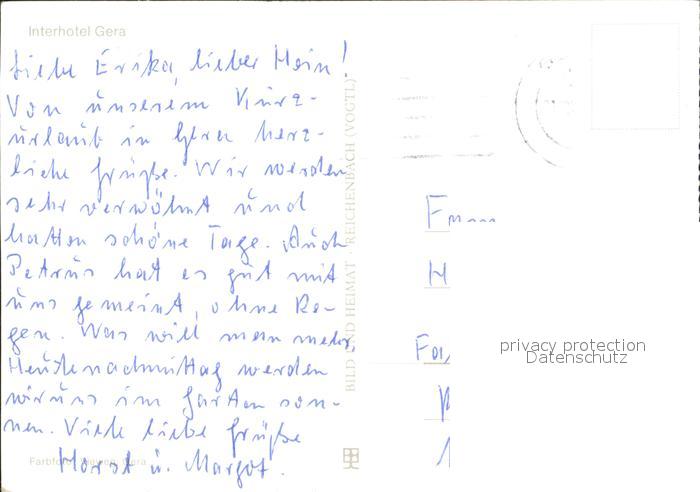 Interhotel Gera
Liebe Erika, lieber Hein!
Von unserem Kurz-
urlaub in Gera herz-
liche Grüße. Wir werden
sehr verwöhnt und
hatten schöne Tage. Auch
Petrus hat es gut mit
uns gemeint, ohne Re-
gen. Was will man mehr.
Heutenachmittag werden
wir uns im Garten son-
nen. Viele liebe Grüße
Horst u. Margot.
Gera
BILD UND HEIMAT · REICHENBACH (VOGTL)
H
privacy protection
Datenschutz